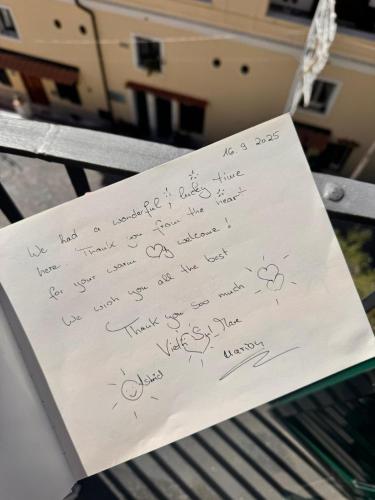 16. 9 2025
We had a wonderful, lucky time
here. Thank you from the heart
for your warm welcome!
We wish you all the best
Thank you soo much
Astrid